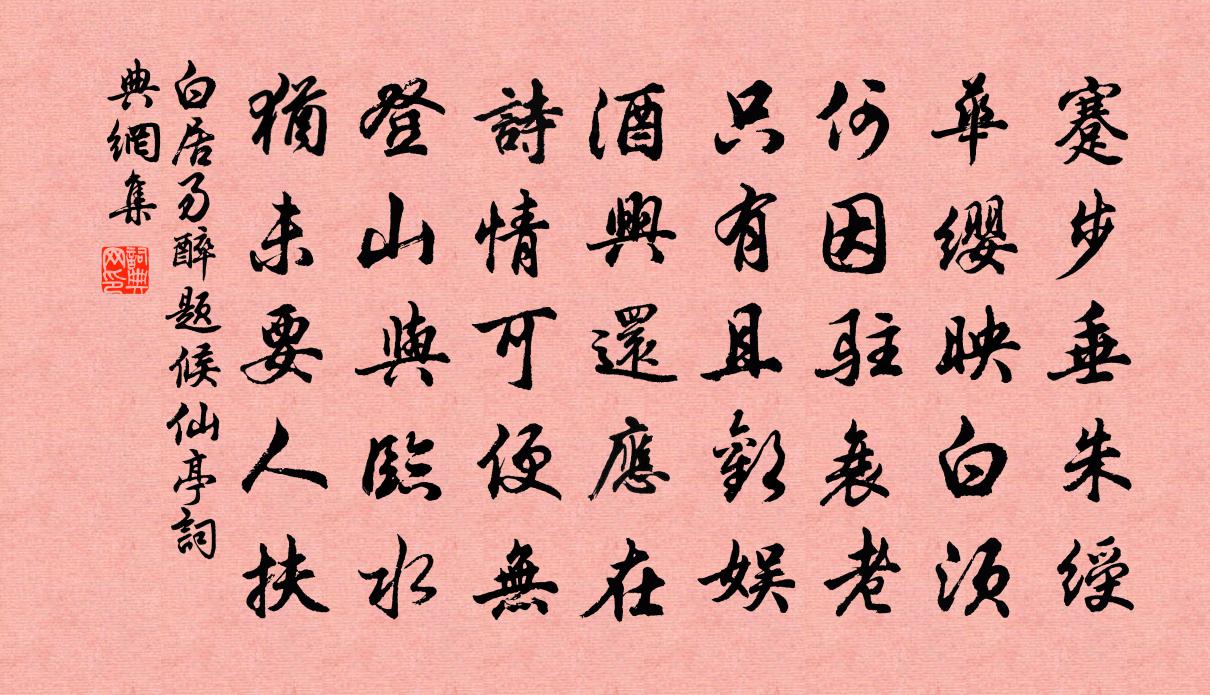 蹇步垂朱綬
華纓映白須
何因駐衰老
只有且歡娛
酒興還應在
詩情可便無
登山與臨水
猶未要人扶
白居易醉題候仙亭詞
典網集
詞典網印